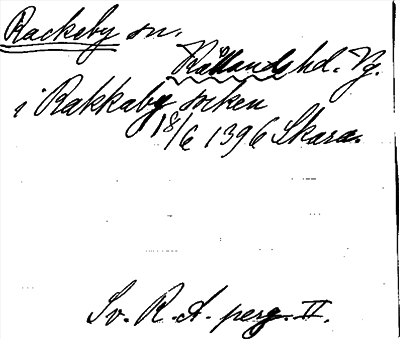 Rackeby sn.
Kållands hd. Vg.
i Rakkaby socken
18/6 1396 Skara.
Sv. R. A. perg. II.